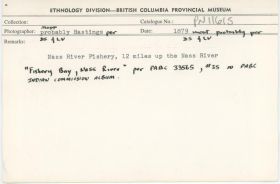 ETHNOLOGY DIVISION—BRITISH COLUMBIA PROVINCIAL MUSEUM
Collection: Catalogue No.: PN11615
Photographer: probably Hastings per Date: 1879 most probably per
Remarks:
Nass River Fishery, 12 miles up the Nass River
"Fishery Bay, Nass River" per PABC 33565, #35 in PABC
INDIAN COMMISSION ALBUM.